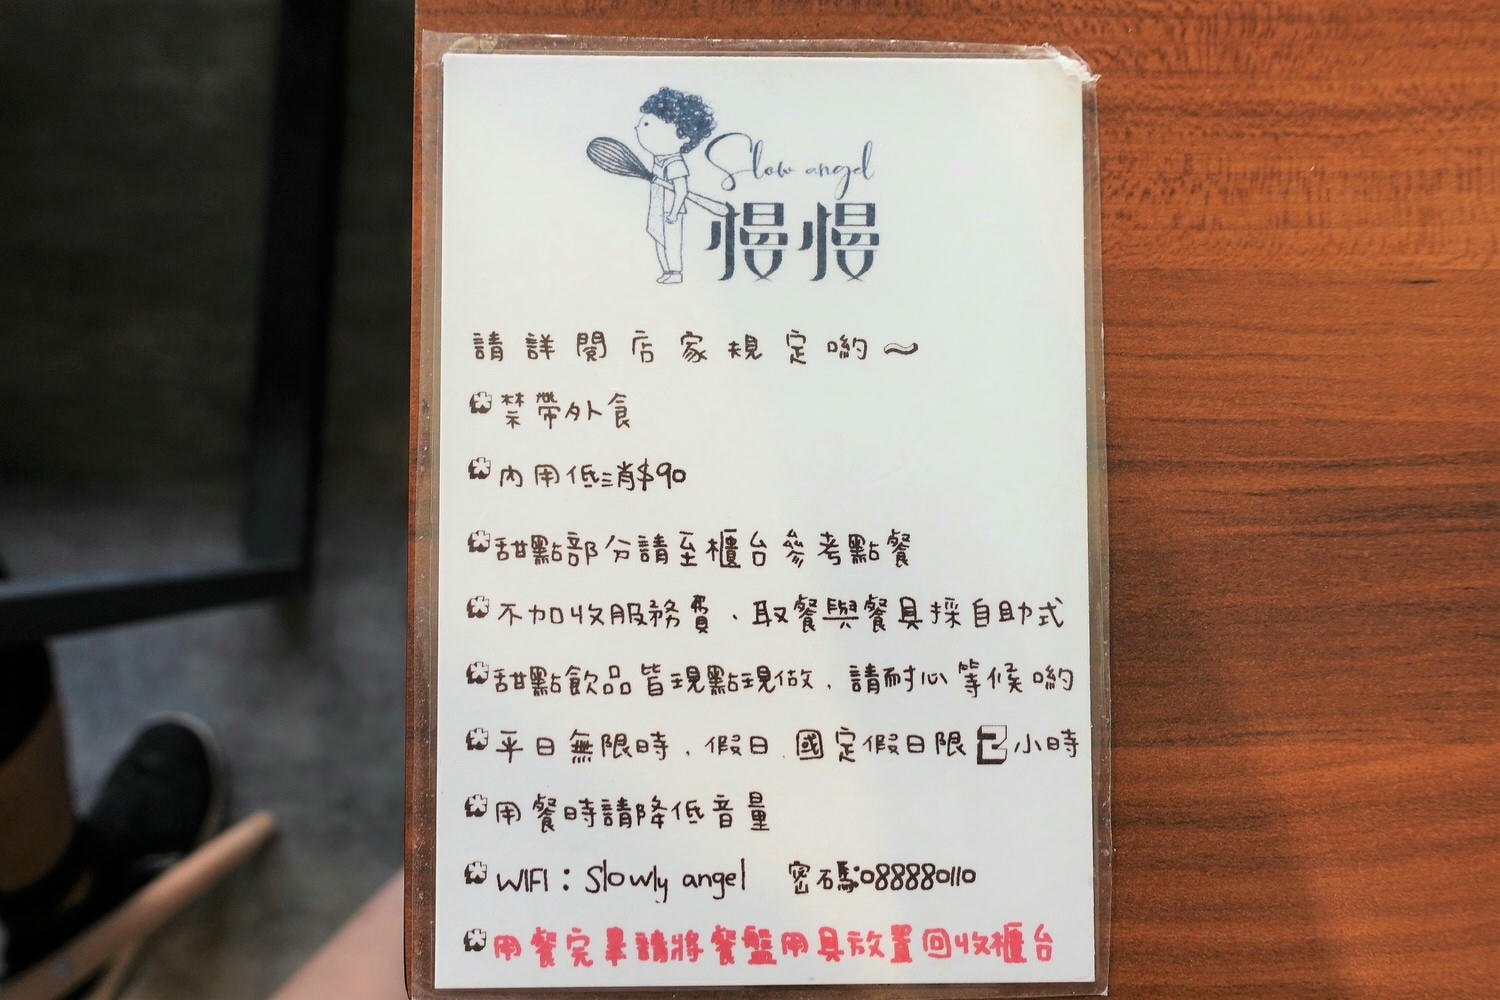 Slow angel
慢慢
請詳閱店家規定喲～
禁帶外食
內用低消$90
甜點部分請至櫃台參考點餐
不加收服務費、取餐與餐具採自助式
甜點飲品皆現點現做，請耐心等候喲
平日無限時，假日．國定假日限2小時
用餐時請降低音量
WIFI：Slowly angel 密碼:088880110
用餐完畢請將餐盤用具放置回收櫃台